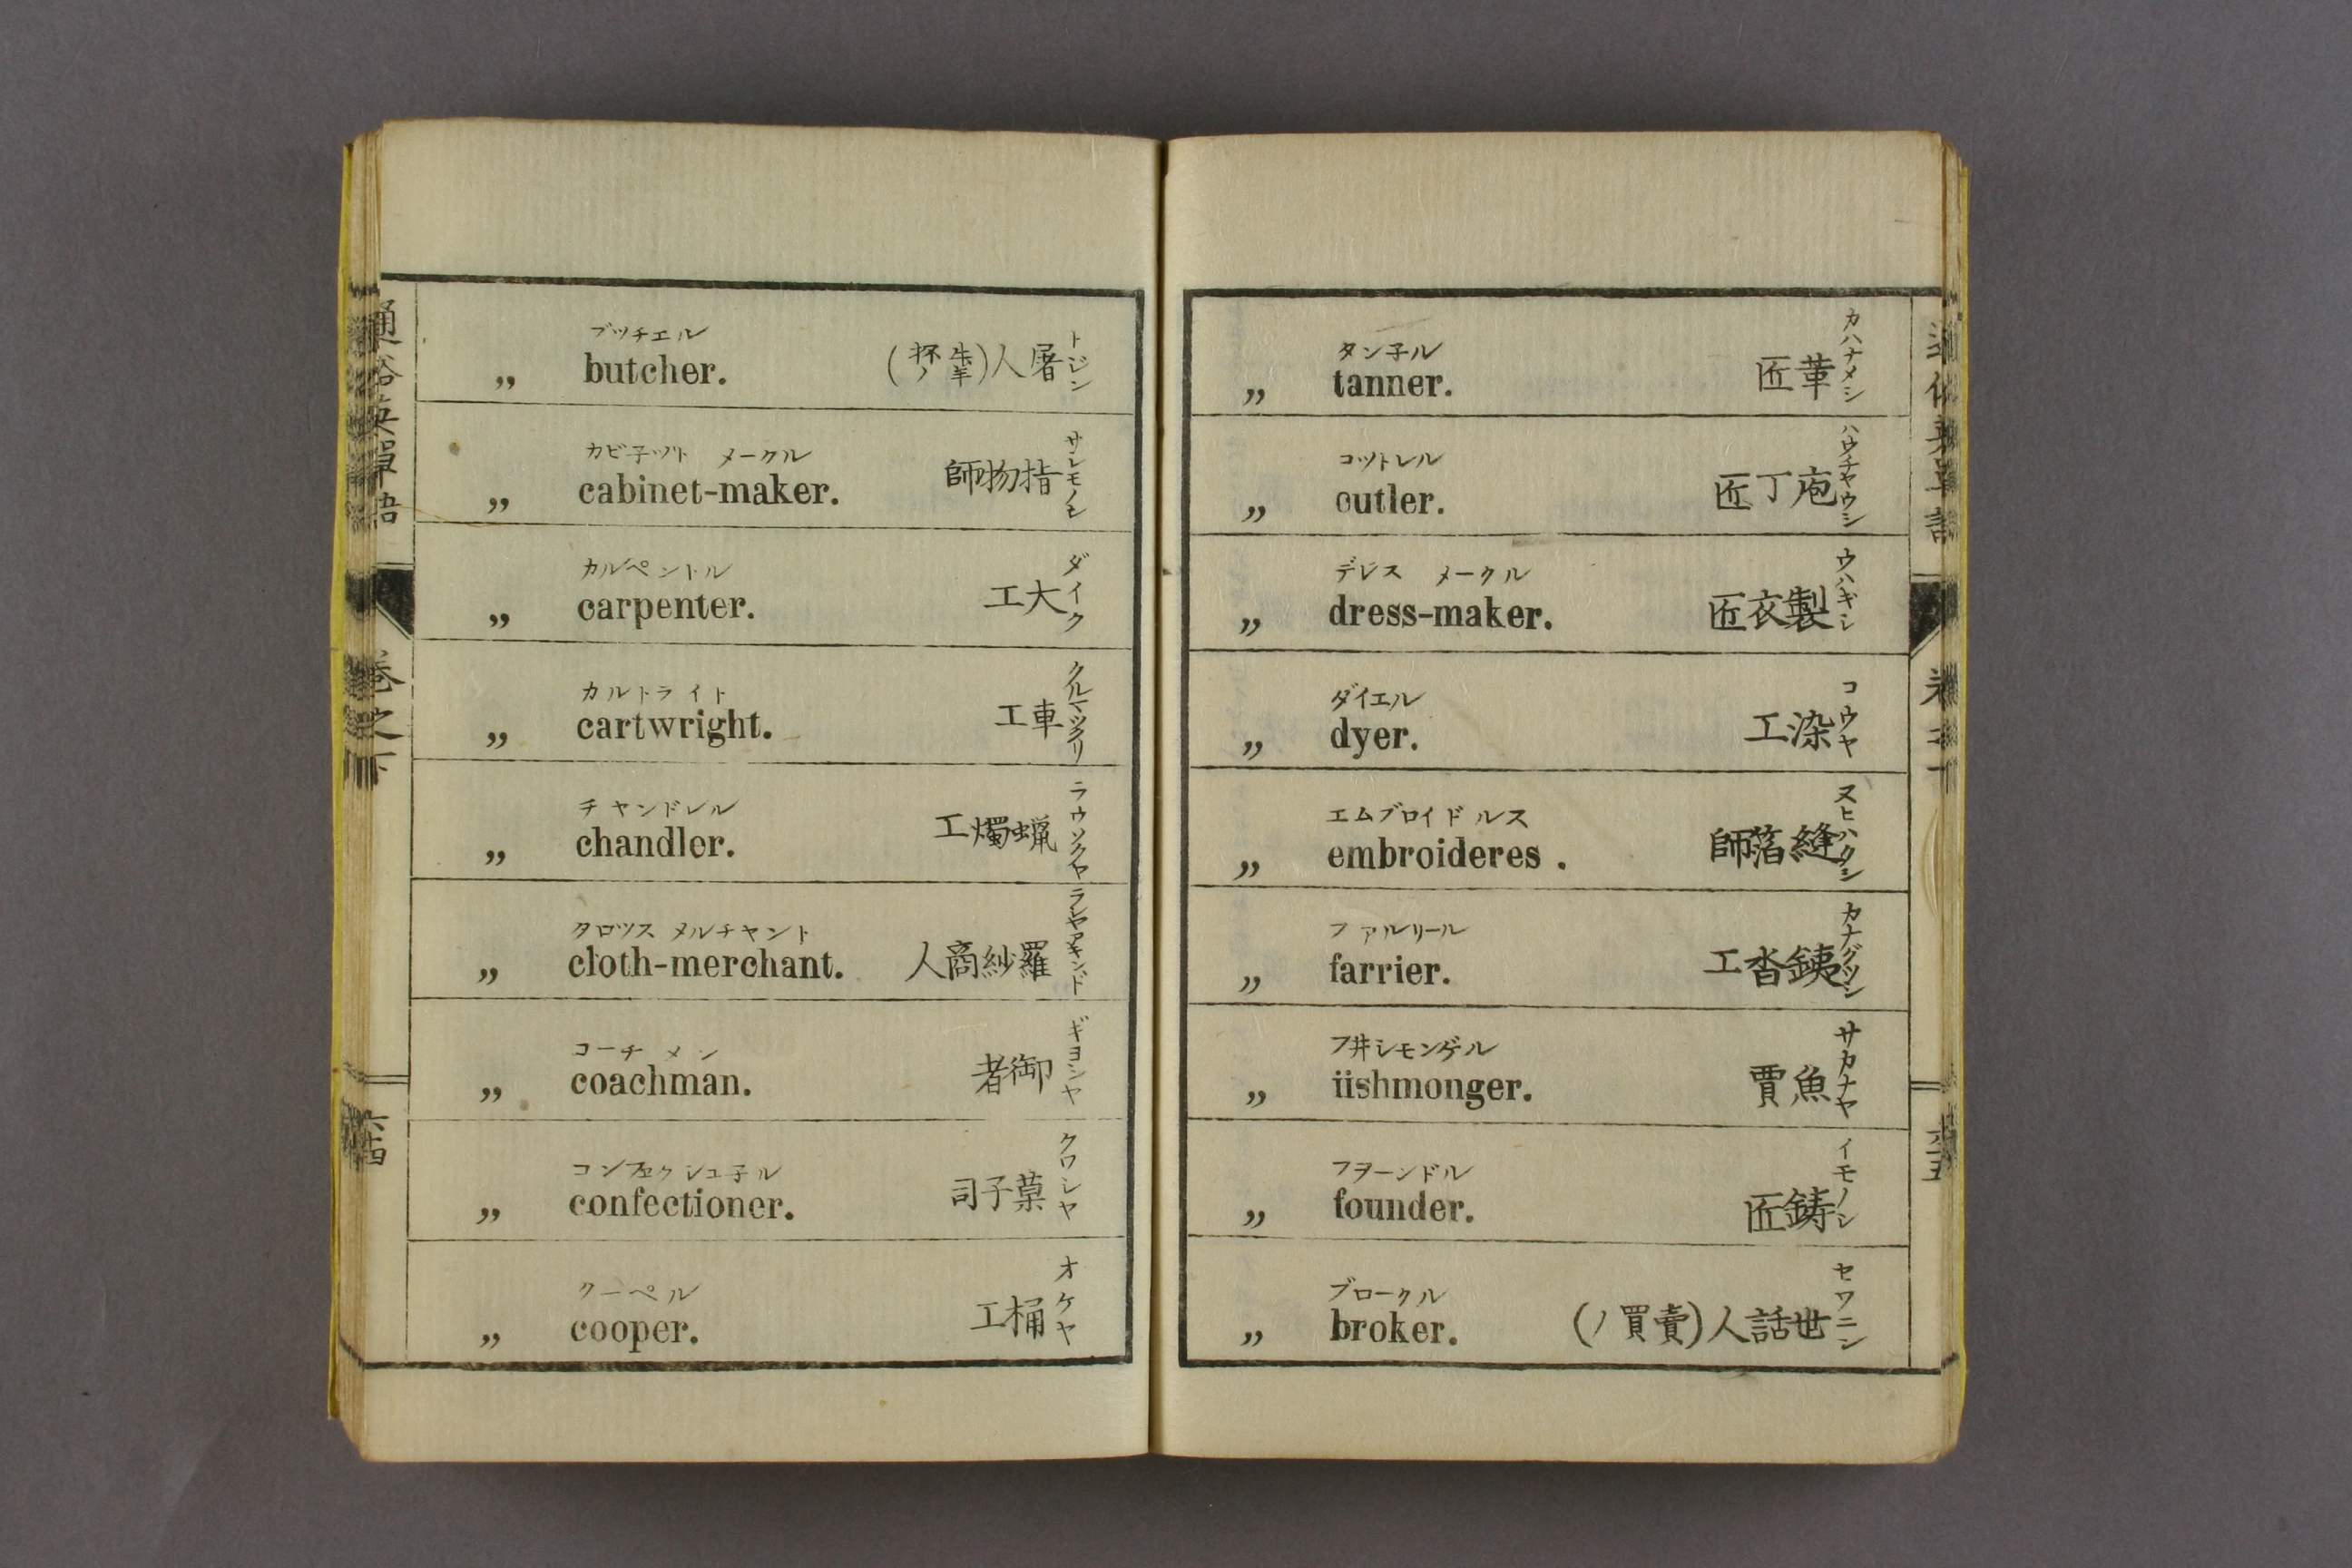 通俗英單語
巻之下
六十四
ブッチエル
„ butcher.
屠人(牛羊杯ノ)
トジン
カビ子ット メークル
„ cabinet-maker.
指物師
サシモノシ
カルペントル
„ carpenter.
大工
ダイク
カルトライト
„ cartwright.
車工
クルマツクリ
チヤンドレル
„ chandler.
蝋燭工
ラウソクヤ
クロツス メルチヤント
„ cloth-merchant.
羅紗商人
ラシヤアキンド
コーチ メン
„ coachman.
御者
ギヨシヤ
コンフェクシュ子ル
„ confectioner.
菓子司
クワシヤ
クーペル
„ cooper.
桶工
オケヤ
タン子ル
„ tanner.
革匠
カハナメシ
コットレル
„ cutler.
庖丁匠
ハウチヤウシ
デレス メークル
„ dress-maker.
製衣匠
ウハギシ
ダイエル
„ dyer.
染工
コウヤ
エムブロイドルス
„ embroideres .
縫箔師
ヌヒハクシ
ファルリール
„ farrier.
銕沓工
カナグツシ
フ井シモンゲル
„ fishmonger.
魚賈
サカナヤ
フヲーンドル
„ founder.
鋳匠
イモノシ
ブロークル
„ broker.
世話人(賣買ノ)
セワニン